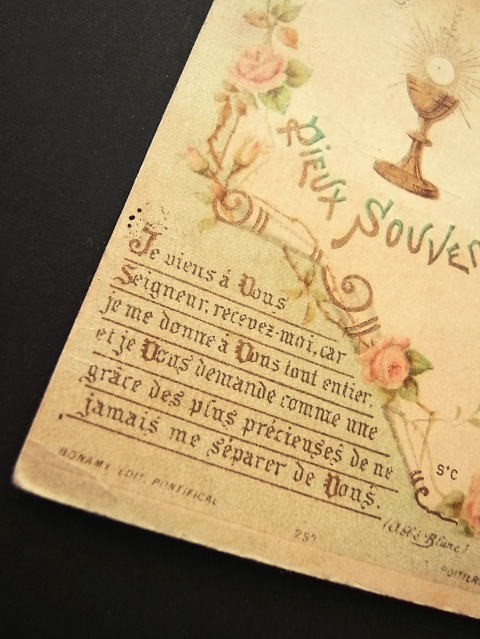 Pieux Souve
Je viens à Vous
Seigneur, recevez-moi, car
je me donne à Vous tout entier,
et je Vous demande comme une
grâce des plus précieuses de ne
jamais me séparer de Vous.
(Abbé Blanc)
S*C
BONAMY EDIT. PONTIFICAL
POITIERS